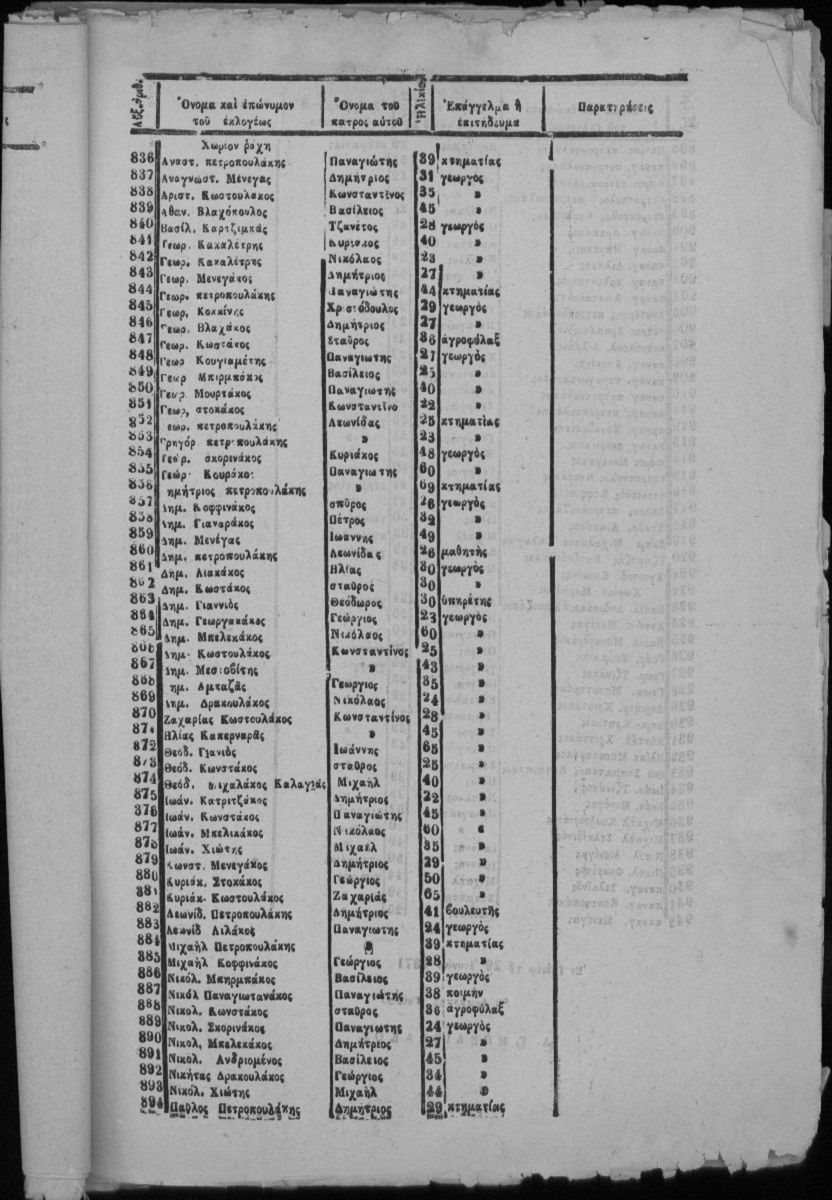 Αὔξ. ἀριθ. Ὄνομα καὶ ἐπώνυμον τοῦ ἐκλογέως Ὄνομα τοῦ πατρος αὐτοῦ Ἡλικία Ἐπάγγελμα ἢ ἐπιτήδευμα Παρατηρήσεις
Χωρίον ῥάχη
836 Αναστ. πετροπουλάκης Παναγιώτης 39 κτηματίας
837 Αναγνωστ. Μένεγας Δημήτριος 31 γεωργὸς
838 Αριστ. Κωστουλακος Κωνσταντῖνος 35 »
839 Αθαν. Βλαχόπουλος Βασίλειος 45 »
840 Βασίλ. Καρτζιμπᾶς Τζανέτος 28 γεωργὸς
841 Γεωρ. Κακαλέτρης Κυριάκος 40 »
842 Γεωρ. Κακαλέτρης Νικόλαος 23 »
843 Γεωρ. Μενεγάκος Δημήτριος 27 »
844 Γεωρ. πετροπουλάκης Παναγιώτης 44 κτηματίας
845 Γεωρ. Κοκκίνης Χριστόδουλος 29 γεωργὸς
846 Γεωρ. Βλαχάκος Δημήτριος 27 »
847 Γεωρ. Κωστάκος σταῦρος 36 ἀγροφύλαξ
848 Γεωρ Κουγιαμέτης Παναγιωτης 27 γεωργὸς
849 Γεωρ Μπιρμπάκης Βασίλειος 25 »
850 Γεωρ Μουρτάκος Παναγιωτης 40 »
851 Γεωρ, στοκάκος Κωνσταντῖνο 22 »
852 εωρ. πετροπουλάκης Λεωνίδας 25 κτηματίας
853 Γρηγόρ πετροπουλάκης » 23 »
854 Γεώρ. σκορινάκος Κυριάκος 48 γεωργὸς
855 Γεώρ Κουράκος Παναγιωτης 60 »
856 ημήτριος πετροπουλάκης » 69 κτηματίας
857 Δημ. Κοφφινάκος σπῦρος 26 γεωργὸς
858 Δημ. Γιαναράκος Πέτρος 32 »
859 Δημ. Μενέγας Ιωαννης 49 »
860 Δημ. πετροπουλάκης Λεωνίδας 26 μαθητὴς
861 Δημ. Λιακάκος Ηλίας 30 γεωργὸς
862 Δημ. Κωστάκος σταῦρος 30 »
863 Δημ. Γιαννιὸς Θεόδωρος 30 ὑπηρέτης
864 Δημ. Γεωργακάκος Γεώργιος 23 γεωργὸς
865 Δημ. Μπελεκάκος Νικόλαος 60 »
866 Δημ. Κωστουλάκος Κωνσταντίνος 25 »
867 Δημ. Μεσιοβίτης » 43 »
868 ημ. Αμπαζᾶς Γεωργιος 35 »
869 Δημ. Δρακουλάκος Νικόλαος 24 »
870 Ζαχαρίας Κωστουλάκος Κωνσταντίνος 28 »
871 Ηλίας Κακερναρᾶς » 45 »
872 Θεόδ. Γιανιὸς Ιωάννης 65 »
873 Θεόδ. Κωνστάκος σταθρος 25 »
874 Θεόδ. Μιχαλάκος Καλαγιᾶς Μιχαὴλ 40 »
875 Ιωάν. Κατριτζάκος Δημήτριος 22 »
876 Ιωάν. Κωνστάκος Παναγιώτης 45 »
877 Ιωάν. Μπελικάκος Νικόλαος 60 «
878 Ιωάν. Χιώτης Μιχαὴλ 35 »
879 Κωνστ. Μενεγάκος Δημήτριος 29 »
880 Κυριάκ. Στοκάκος Γεώργιος 50 »
881 Κυριάκ. Κωστουλάκος Ζαχαρίας 65 »
882 Λεωνίδ. Πετροπουλάκης Δημήτριος 41 βουλευτὴς
883 Λεωνίδ Λιλάκος Παναγιωτης 24 γεωργὸς
884 Μιχαὴλ Πετροπουλάκης » 39 κτηματίας
885 Μιχαὴλ Κοφφινάκος Γεώργιος 28 »
886 Νικόλ. Μπηρμπάκος Βασίλειος 39 γεωργὸς
887 Νικόλ Παναγιωτανάκος Παναγιώτης 38 ποιμὴν
888 Νικολ. Κωνστάκος σταῦρος 36 ἀγροφύλαξ
889 Νικολ. Σκορινάκος Παναγιωτης 24 γεωργὸς
890 Νικολ. Μπελεκάκος Δημήτριος 27 »
891 Νικολ. Ανδριομένος Βασίλειος 45 »
892 Νικήτας Δρακουλάκος Γεώργιος 34 »
893 Νικόλ. Χιώτης Μιχαὴλ 44 »
894 Παῦλος Πετροπουλάκης Δημήτριος 29 κτηματίας